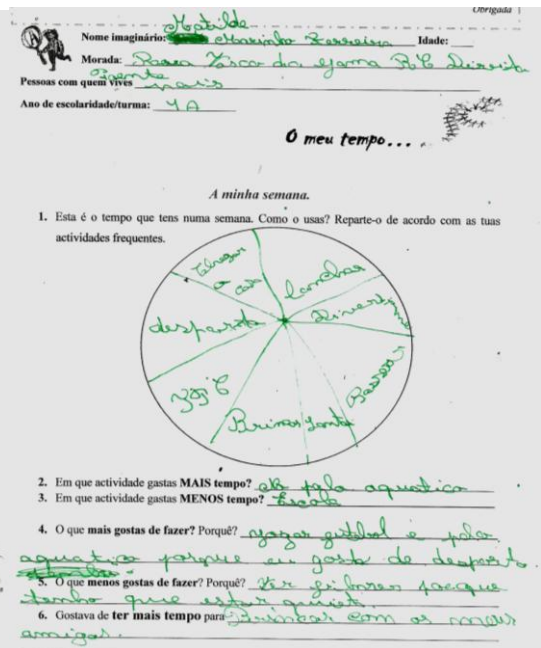 Obrigada
Matilde
Nome imaginário: Marinho Ferreira Idade:
Morada: Vasco da Gama R/C Direito
Pessoas com quem vives pais
Ano de escolaridade/turma: 4A
O meu tempo...
A minha semana.
1. Esta é o tempo que tens numa semana. Como o usas? Reparte-o de acordo com as tuas
actividades frequentes.
chegar
a casa
lanchar
desporto
Brincar
Janta
Passear
2. Em que actividade gastas MAIS tempo? polo aquatico
3. Em que actividade gastas MENOS tempo? Escola
4. O que mais gostas de fazer? Porquê? e polo
aquatico porque eu gosto de desporto.
5. O que menos gostas de fazer? Porquê? Ver filmes porque
tenho que estar quieta.
6. Gostava de ter mais tempo para Brincar com os meus
amigos.